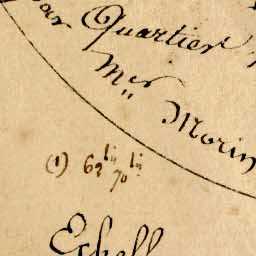 par Quartier
Mr Morin
(1) 62 lis 70 lis
Echell